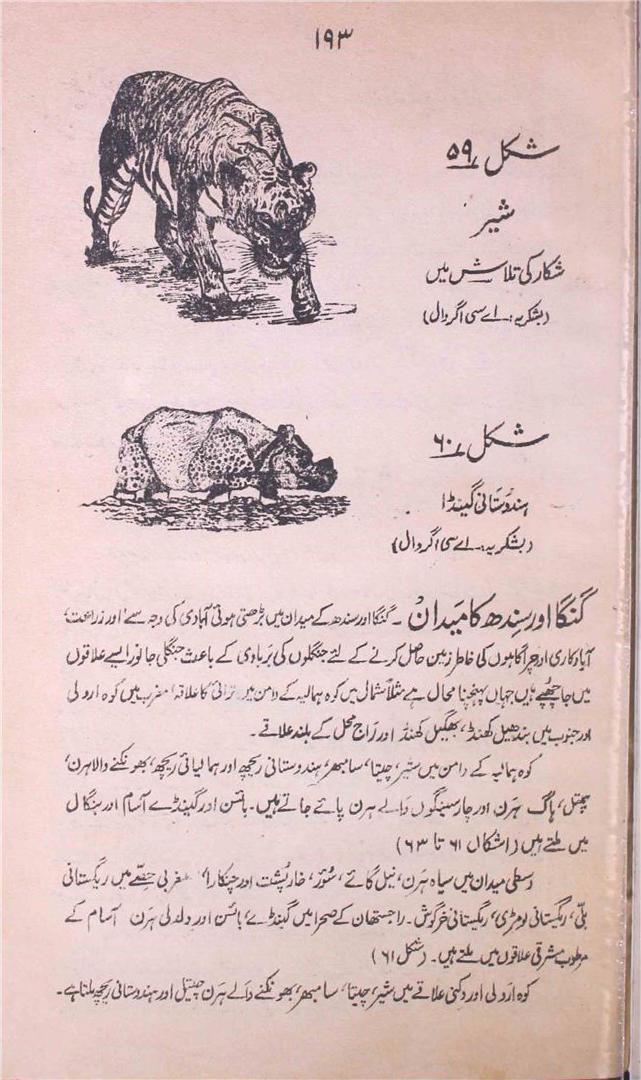 ۱۹۳
شکل ۵۹
شیر
شکار کی تلاش میں
(بشکریہ:۔ اے سی اگروال)
شکل ۶۰
ہندوستانی گینڈا
(بشکریہ:۔ اے سی اگروال)
گنگا اور سندھ کا میدان ۔ گنگا اور سندھ کے میدان میں بڑھتی ہوئی آبادی کی وجہ سے اور زراعت،
آباد کاری اور چراگاہوں کی خاطر زمین حاصل کرنے کے لئے جنگلوں کی بربادی کے باعث جنگلی جانور ایسے علاقوں
میں جا چھپے ہیں جہاں پہنچنا محال ہے مثلاً شمال میں کوہ ہمالیہ کے دامن میں ترائی کا علاقہ، مغرب میں کوہ ارولی
اور جنوب میں بندھیل کھنڈ، بھگیل کھنڈ اور راج محل کے بلند علاقے۔
کوہ ہمالیہ کے دامن میں شیر، چیتا، سامبھر، ہندوستانی ریچھ اور ہمالیائی ریچھ، بھونکنے والا ہرن،
چیتل، ہاگ ہرن اور چار سینگوں والے ہرن پائے جاتے ہیں۔ بائسن اور گینڈے آسام اور بنگال
میں ملتے ہیں (اشکال ۶۱ تا ۶۳)
وسطی میدان میں سیاہ ہرن، نیل گائے، سُور، خارپشت اور چنکارا، مغربی حصے میں ریگستانی
بلی، ریگستانی لومڑی، ریگستانی خرگوش۔ راجستھان کے صحرا میں گینڈے، بائسن اور دلدلی ہرن آسام کے
مرطوب مشرقی علاقوں میں ملتے ہیں۔ (شکل ۶۱)
کوہ ارولی اور دکنی علاقے میں شیر، چیتا، سامبھر، بھونکنے والے ہرن چیتل اور ہندوستانی ریچھ ملتا ہے۔